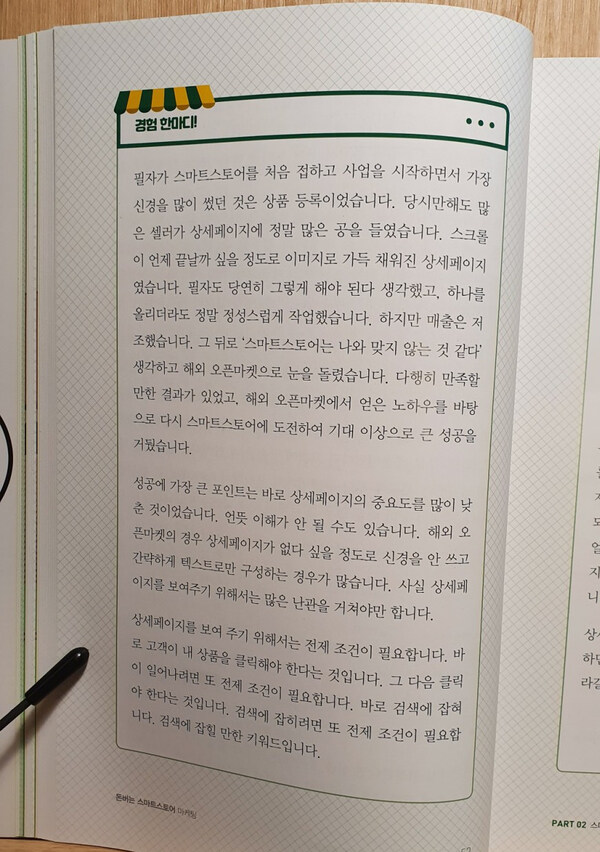 경험 한마디!
필자가 스마트스토어를 처음 접하고 사업을 시작하면서 가장
신경을 많이 썼던 것은 상품 등록이었습니다. 당시만해도 많
은 셀러가 상세페이지에 정말 많은 공을 들였습니다. 스크롤
이 언제 끝날까 싶을 정도로 이미지로 가득 채워진 상세페이지
였습니다. 필자도 당연히 그렇게 해야 된다 생각했고, 하나를
올리더라도 정말 정성스럽게 작업했습니다. 하지만 매출은 저
조했습니다. 그 뒤로 ‘스마트스토어는 나와 맞지 않는 것 같다’
생각하고 해외 오픈마켓으로 눈을 돌렸습니다. 다행히 만족할
만한 결과가 있었고, 해외 오픈마켓에서 얻은 노하우를 바탕
으로 다시 스마트스토어에 도전하여 기대 이상으로 큰 성공을
거뒀습니다.
성공에 가장 큰 포인트는 바로 상세페이지의 중요도를 많이 낮
춘 것이었습니다. 언뜻 이해가 안 될 수도 있습니다. 해외 오
픈마켓의 경우 상세페이지가 없다 싶을 정도로 신경을 안 쓰고
간략하게 텍스트로만 구성하는 경우가 많습니다. 사실 상세페
이지를 보여주기 위해서는 많은 난관을 거쳐야만 합니다.
상세페이지를 보여 주기 위해서는 전제 조건이 필요합니다. 바
로 고객이 내 상품을 클릭해야 한다는 것입니다. 그 다음 클릭
이 일어나려면 또 전제 조건이 필요합니다. 바로 검색에 잡혀
야 한다는 것입니다. 검색에 잡히려면 또 전제 조건이 필요합
니다. 검색에 잡힐 만한 키워드입니다.
돈버는 스마트스토어 마케팅
PART 02